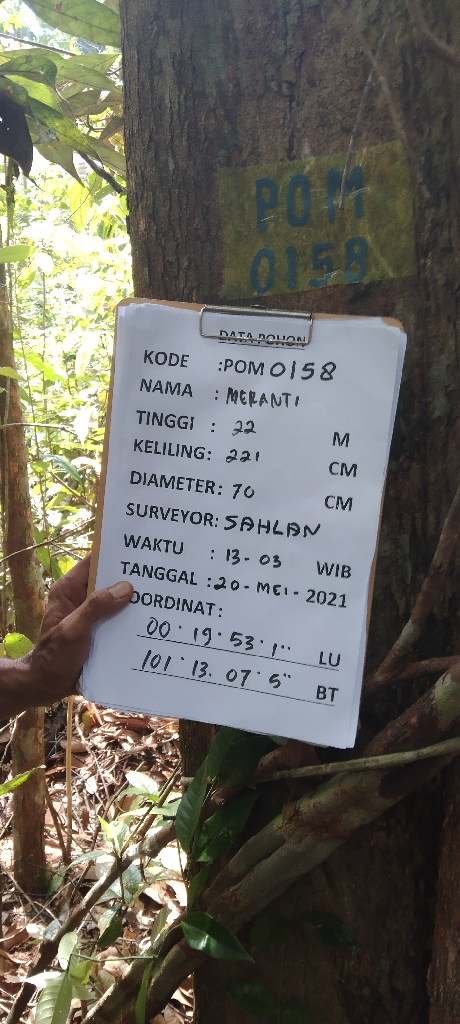 POM
0158
DATA POHON
KODE :POM 0158
NAMA : MERANTI
TINGGI : 22 M
KELILING: 221 CM
DIAMETER: 70 CM
SURVEYOR: SAHLAN
WAKTU : 13-03 WIB
TANGGAL :20-MEI-2021
OORDINAT:
00° 19° 53° 1'' LU
101° 13. 07° 5'' BT